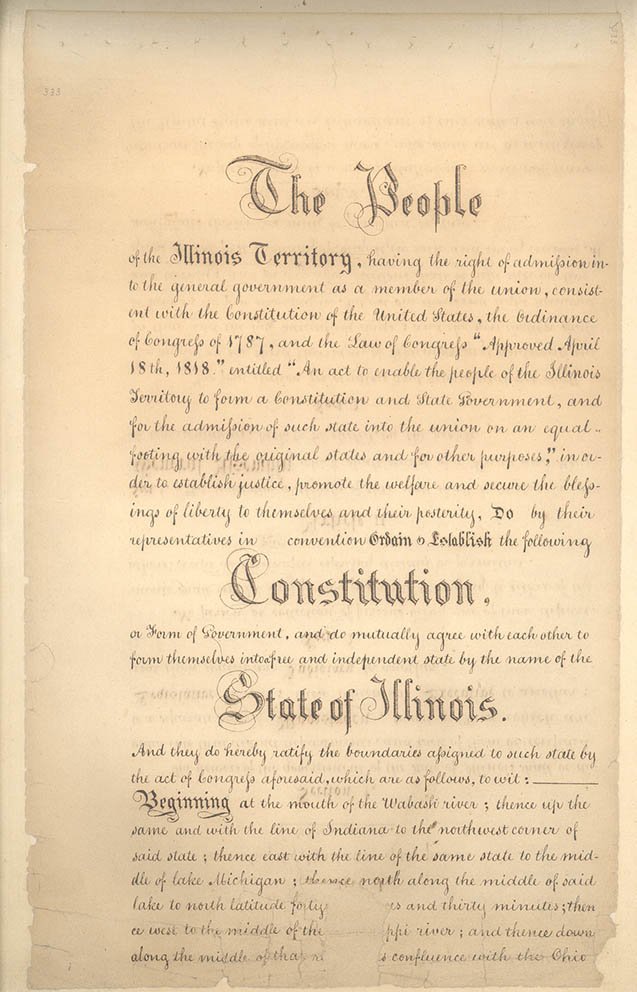 333
The People
of the Illinois Territory, having the right of admission in-
to the general government as a member of the union, consist-
ent with the Constitution of the United States, the Ordinance
of Congress of 1787, and the Law of Congress "Approved April
18th, 1818." entitled "An act to enable the people of the Illinois
Territory to form a Constitution and State Government, and
for the admission of such state into the union on an equal
footing with the original states and for other purposes," in or-
der to establish justice, promote the welfare and secure the bless-
ings of liberty to themselves and their posterity, Do by their
representatives in convention Ordain & Establish the following
Constitution,
or Form of Government, and do mutually agree with each other to
form themselves into a free and independent state by the name of the
State of Illinois.
And they do hereby ratify the boundaries assigned to such state by
the act of Congress aforesaid, which are as follows, to wit:
Beginning at the mouth of the Wabash river; thence up the
same and with the line of Indiana to the northwest corner of
said state; thence east with the line of the same state to the mid-
dle of lake Michigan; thence north along the middle of said
lake to north latitude forty es and thirty minutes; then
ce west to the middle of the ppi river; and thence down
along the middle of that s confluence with the Ohio